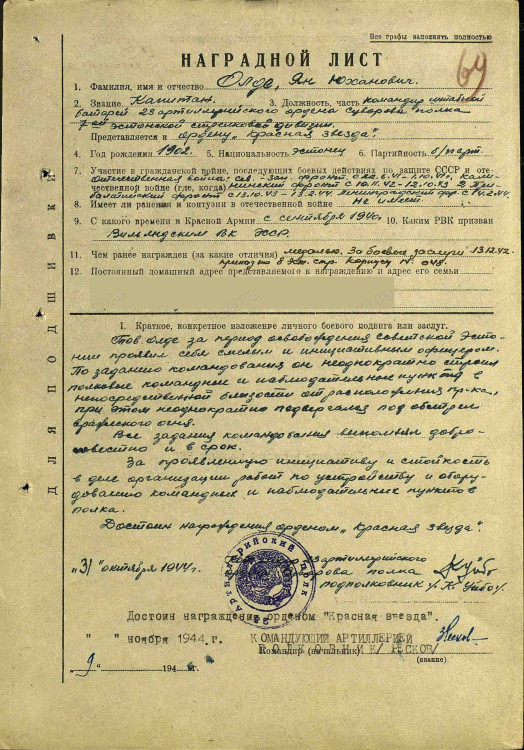 Все графы заполнять полностью
64
НАГРАДНОЙ ЛИСТ
1. Фамилия, имя и отчество Олдо, Ян Юханович.
2. Звание Капитан. 3. Должность, часть командир штабной
батареи 23 артиллерийского ордена Суворова полка
7-ой эстонской стрелковой дивизии.
Представляется к ордену "Красная Звезда".
4. Год рождения 1902. 5. Национальность эстонец 6. Партийность б/парт.
7. Участие в гражданской войне, последующих боевых действиях по защите СССР и отечественной войне (где, когда)
Отечественная война: Сев-Зап. фронт с
Калининский фронт с 10.11.42 - 12.10.43 2 Прибалтийский фронт с 13.10.43 - 13.2.44 Ленинградский фр. с 14.2.44.
8. Имеет ли ранения и контузии в отечественной войне не имеет
9. С какого времени в Красной Армии с сентября 1940г. 10. Каким РВК призван
Вильяндским ВК ЭССР.
11. Чем ранее награжден (за какие отличия) медалью "За боевые заслуги" 13.12.42.
приказ 8 Эст. стр. Корпуса № 048.
12. Постоянный домашний адрес представляемого к награждению и адрес его семьи
I. Краткое, конкретное изложение личного боевого подвига или заслуг.
Тов. Олдо за период освобождения Советской Эстонии проявил себя смелым и инициативным офицером.
По заданию командования он неоднократно строил
полковые командные и наблюдательные пункты в
непосредственной близости от расположения пр-ка,
при этом неоднократно подвергался под обстрел
вражеского огня.
Все задания командования выполнял добросовестно и в срок.
За проявленную инициативу и стойкость
в деле организации работ по устройству и оборудованию командных и наблюдательных пунктов
полка.
Достоин награждения орденом "Красная звезда".
"31" октября 1944 г. 23 артиллерийского
Суворова полка
подполковник
Достоин награждения орденом "Красная звезда".
" " ноября 1944 г. КОМАНДУЮЩИЙ АРТИЛЛЕРИЕЙ
Командир (начальник)
ПОЛКОВНИК
(звание)
"9" 194 г.
ДЛЯ ПОДШИВКИ